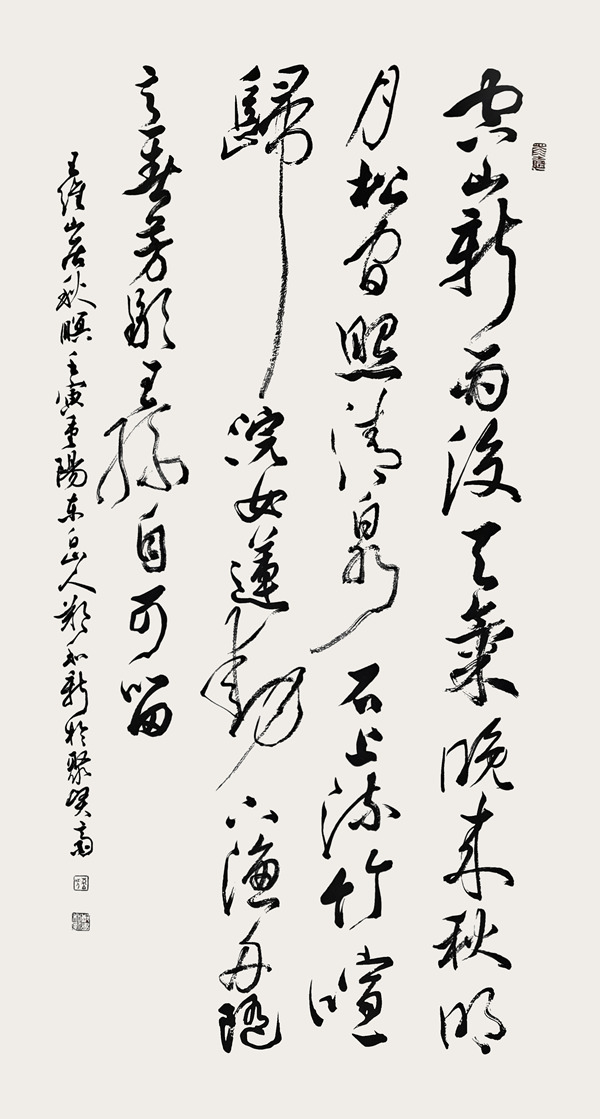 空山新雨後天氣晚来秋明
月松间照清泉石上流竹喧
歸浣女蓮動下漁舟隨
意春芳歇王孫自可留
王維山居秋暝壬寅重陽东白山人鄭和新於聚賢斋